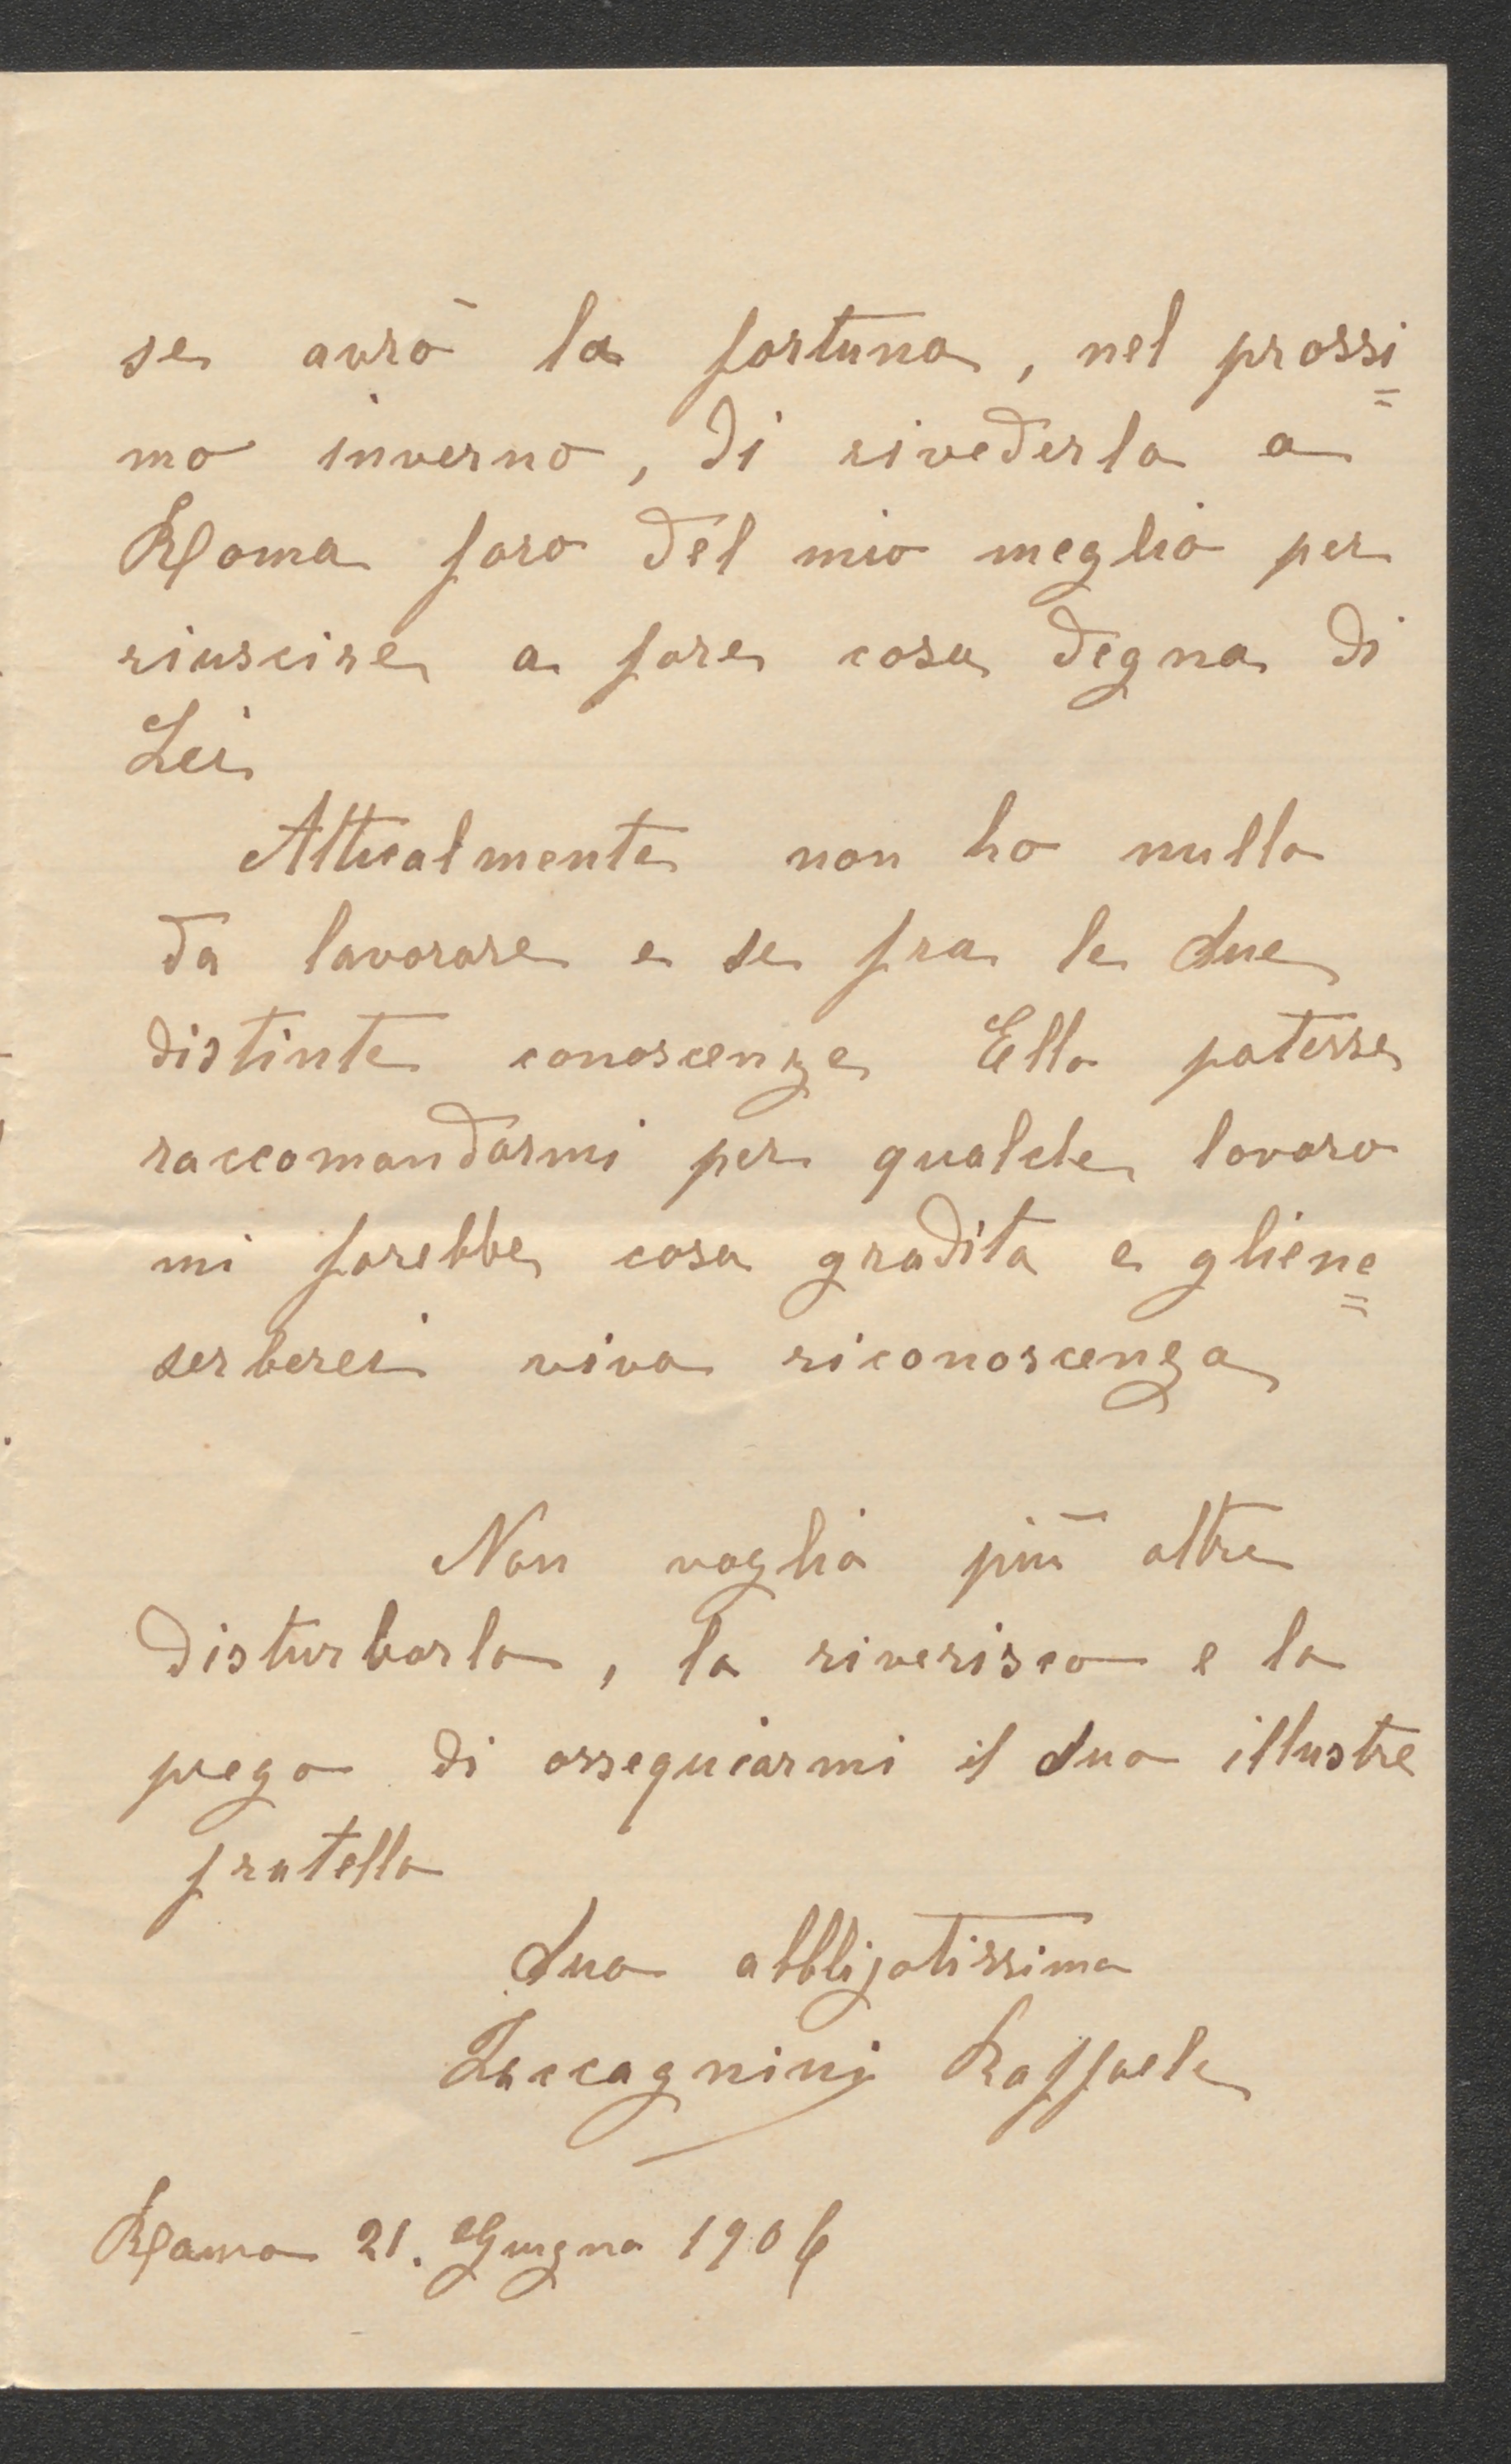 se avrò la fortuna, nel prossi=
mo inverno, di rivederla a
Roma faro del mio meglio per
riuscire a fare cosa degna di
Lei
Attualmente non ho nulla
da lavorare e se fra le Sue
distinte conoscenze Ella potesse
raccomandarmi per qualche lavoro
mi farebbe cosa gradita e gliene=
serberei viva riconoscenza
Non voglio più oltre
disturbarla, la riverisco e la
prego di ossequiarmi il Suo illustre
fratello
Suo obbligatissimo
Zaccagnini Raffaele
Roma 21. Giugno 1906